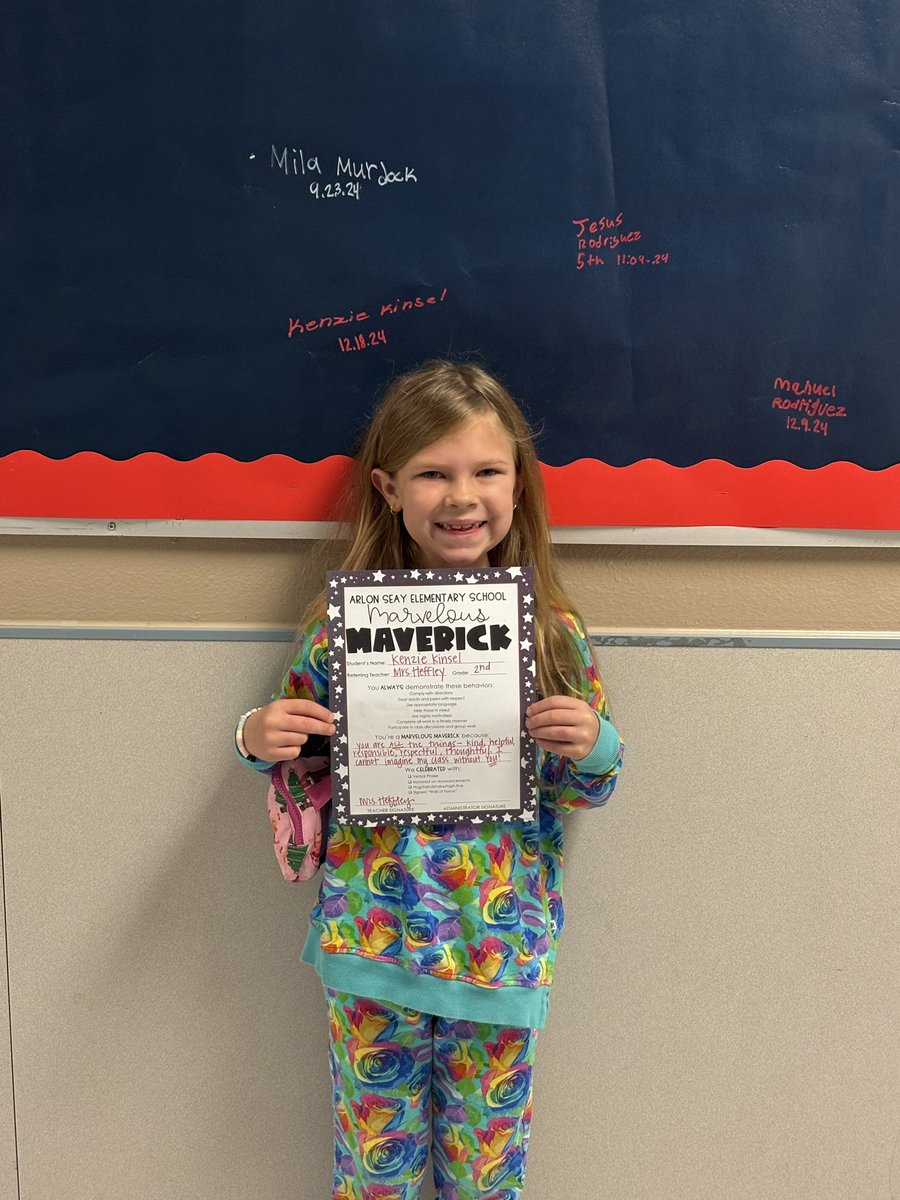 Mila Murdock
9.23.24
Jesus
Rodriguez
5th 11:04-24
Kenzie Kinsel
12.18.24
Manuel
Rodriguez
12.9.24
ARLON SEAY ELEMENTARY SCHOOL
Marvelous
MAVERICK
Student's Name: Kenzie Kinsel
Referring Teacher: Mrs Heffley Grade: 2nd
You ALWAYS demonstrate these behaviors:
Comply with directions
Treat adults and peers with respect
Use appropriate language
Help those in need
Are highly motivated
Complete all work in a timely manner
Participate in class discussions and group work
You're a MARVELOUS MAVERICK because:
you are ALL the things- kind, helpful,
responsible, respectful, thoughtful. I
cannot imagine my class without you!
We CELEBRATED with:
Verbal Praise
Honored on Announcements
Hug/handshake/high-five
Signed "Wall of Fame"
Mrs Heffley
TEACHER SIGNATURE ADMINISTRATOR SIGNATURE